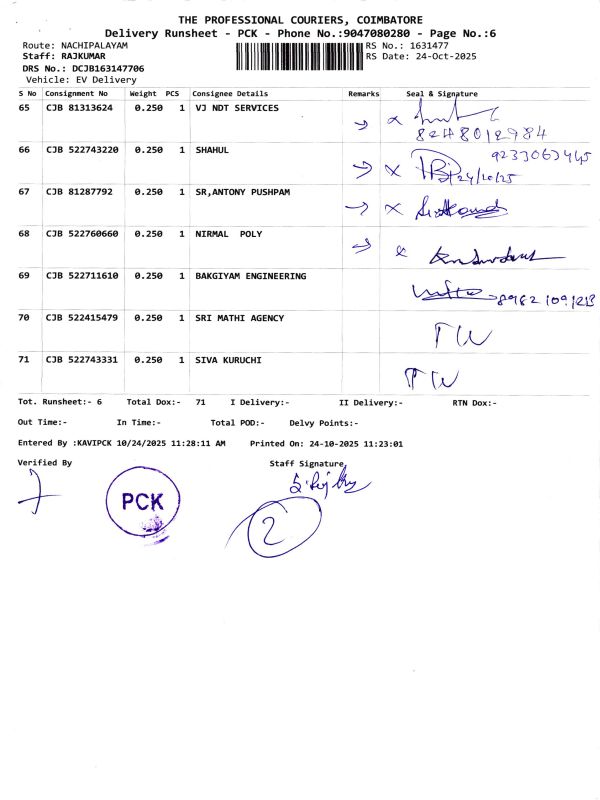 THE PROFESSIONAL COURIERS, COIMBATORE
Delivery Runsheet - PCK - Phone No.:9047080280 - Page No.:6
Route: NACHIPALAYAM RS No.: 1631477
Staff: RAJKUMAR RS Date: 24-Oct-2025
DRS No.: DCJB163147706
Vehicle: EV Delivery
S No Consignment No Weight PCS Consignee Details Remarks Seal & Signature
65 CJB 81313624 0.250 1 VJ NDT SERVICES
66 CJB 522743220 0.250 1 SHAHUL
24/10/25
67 CJB 81287792 0.250 1 SR,ANTONY PUSHPAM
68 CJB 522760660 0.250 1 NIRMAL POLY
69 CJB 522711610 0.250 1 BAKGIYAM ENGINEERING
70 CJB 522415479 0.250 1 SRI MATHI AGENCY
71 CJB 522743331 0.250 1 SIVA KURUCHI
Tot. Runsheet:- 6 Total Dox:- 71 I Delivery:- II Delivery:- RTN Dox:-
Out Time:- In Time:- Total POD:- Delvy Points:-
Entered By :KAVIPCK 10/24/2025 11:28:11 AM Printed On: 24-10-2025 11:23:01
Verified By Staff Signature
PCK
2